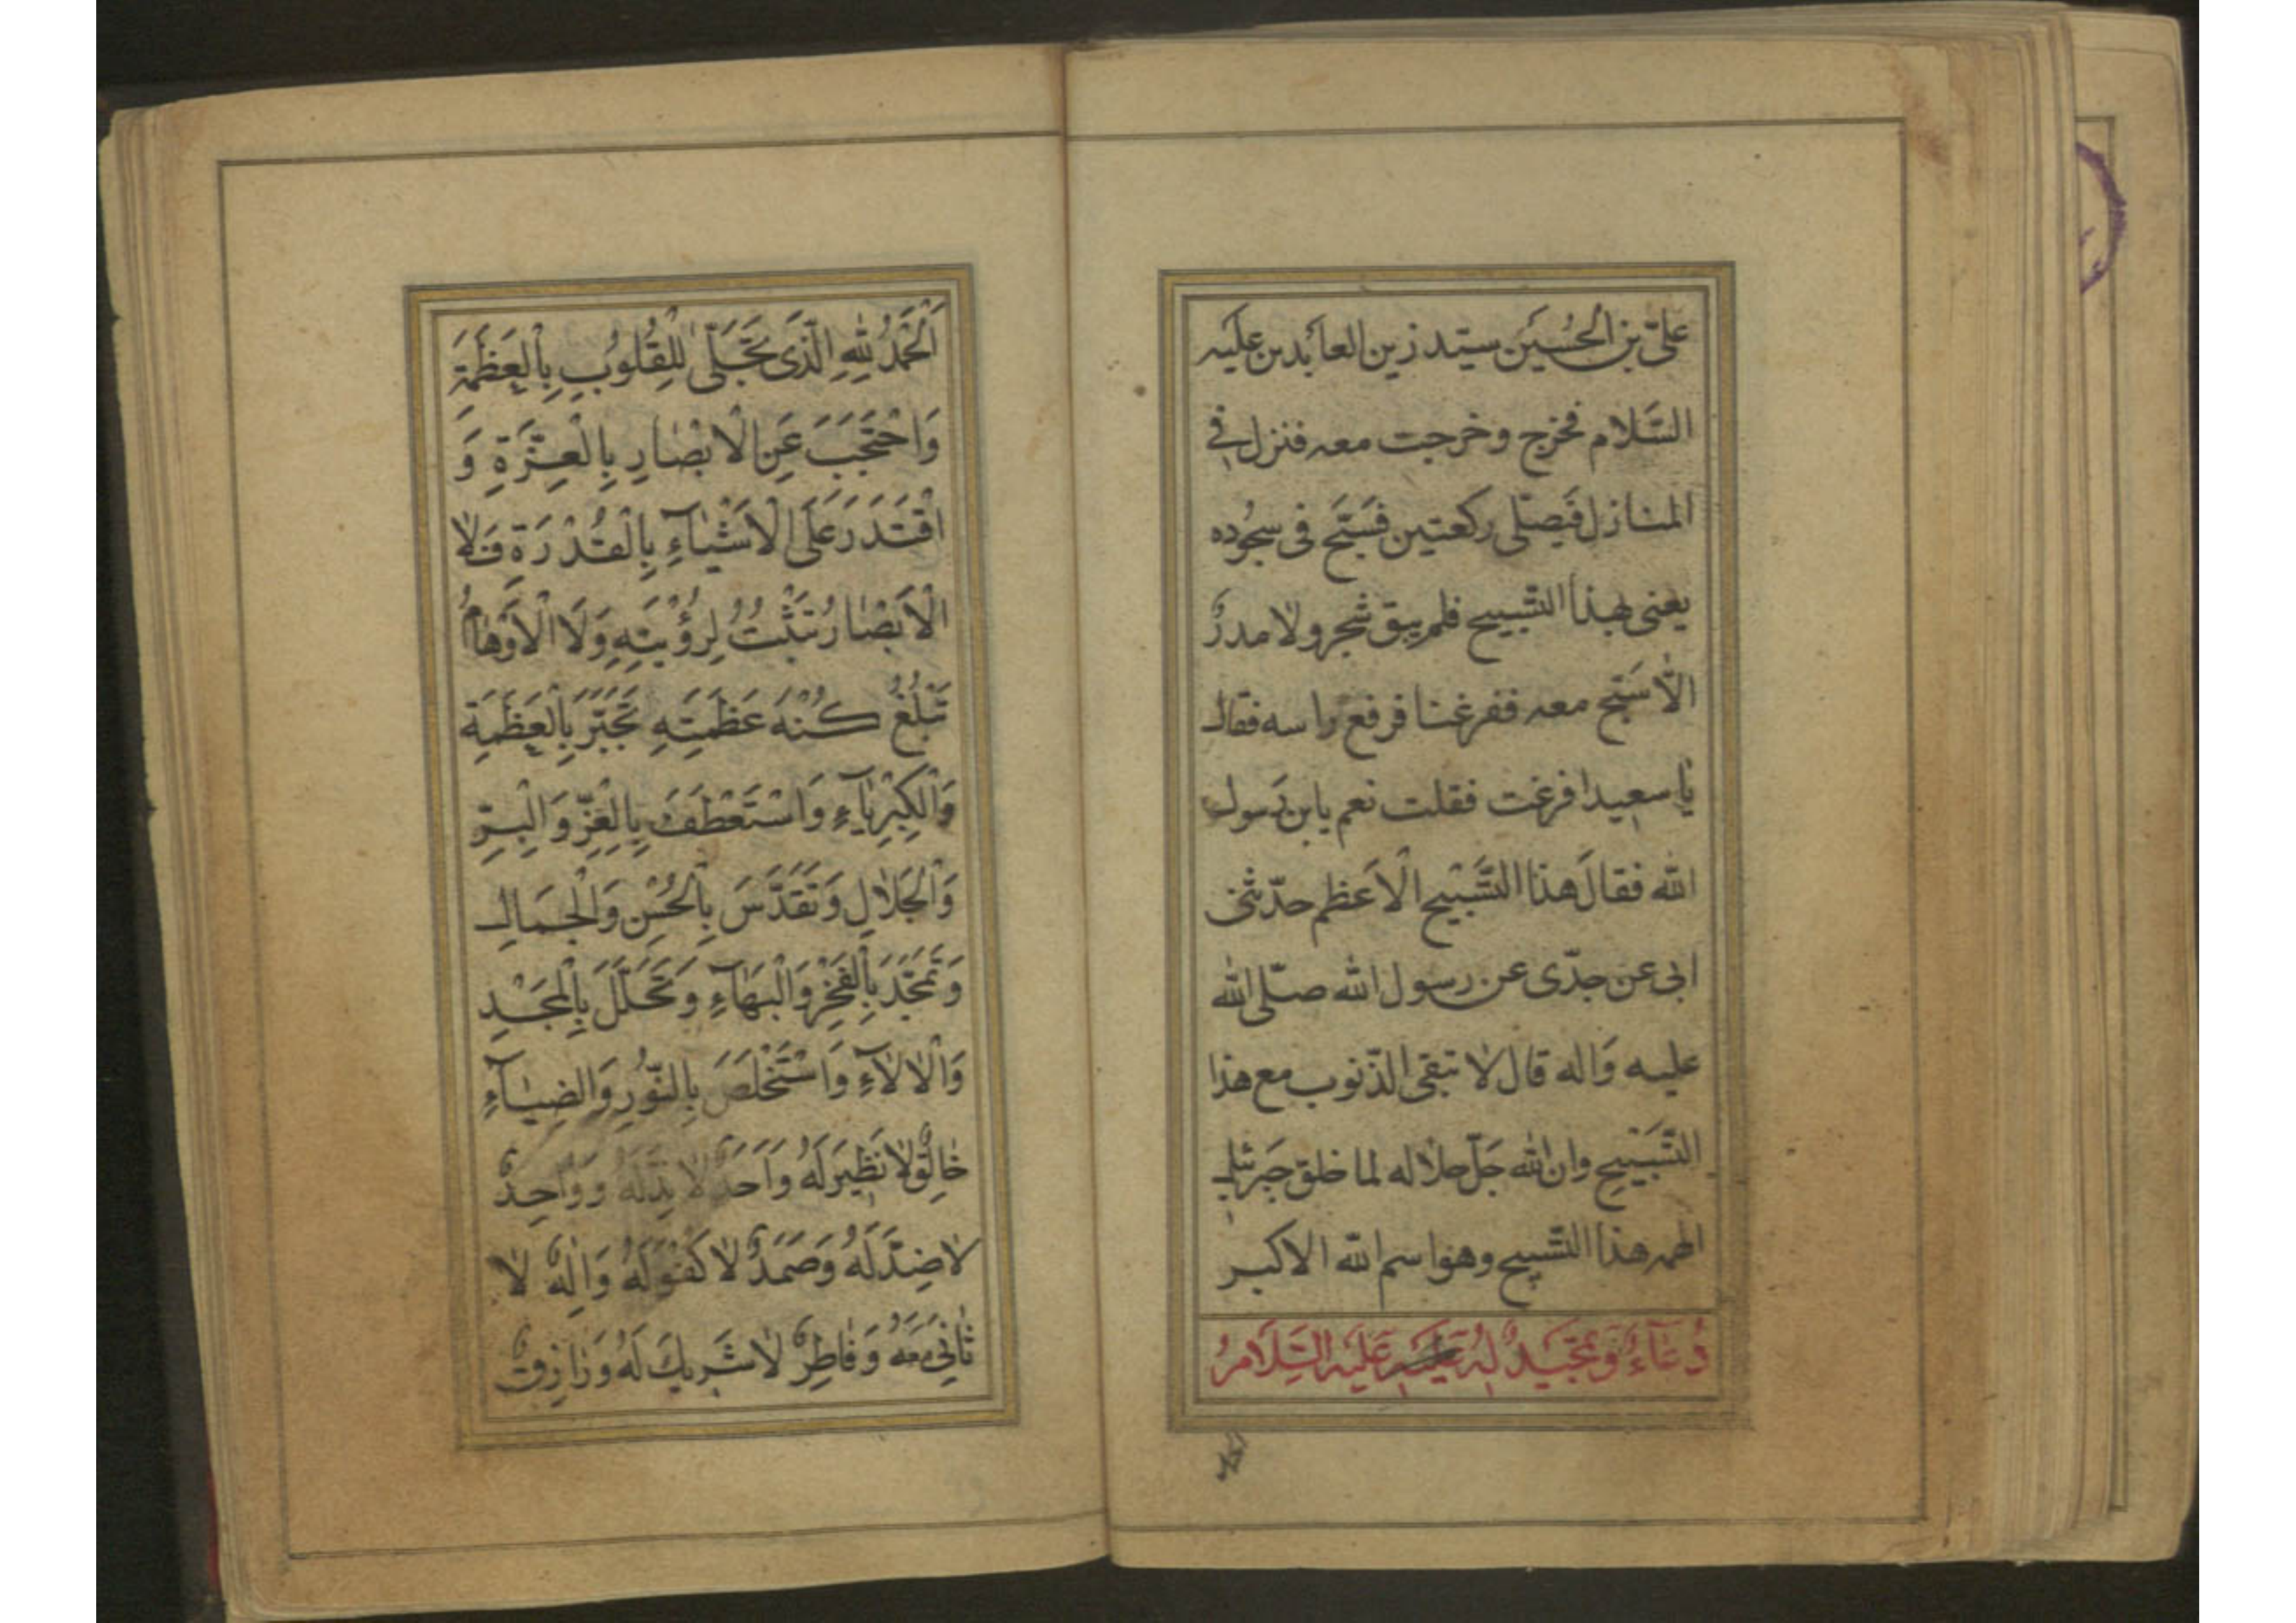 علىّ بن الحُسَين سيّد زين العابدين عليه
السَّلام فخرج وخرجت معه فنزل فى
المنازل فَيصلّى ركعتين فسَبّح فى سجُوده
يعنى بهذا التّسبيح فلم يبق شجر ولا مدرٌ
الّا سَبّح معه ففرغنا فرفع راسه فقال
يا سعيد افرغت فقلت نعم يابن رَسول
الله فقالَ هذا التَّسْبيح الْاَعظم حدّثنى
ابى عن جدّى عن رسول الله صلّى الله
عليه وَاله قال لا تبقى الذّنوب مع هذا
التَّسْبيح وان الله جَلّ جلاله لما خلق جَبرئيل
الهمه هذا التّسبيح وهو اسم الله الاكبر
دُعَآءٌ وَتَمجَيدٌ لهُ عَلَيْهِ السَّلَامُ
اَلْحَمْدُ لِلّٰهِ الَّذى تَجَلّىٰ لِلْقُلُوبِ بِالْعَظَمَةِ
وَاحْتَجَبَ عَنِ الْاَبْصٰارِ بِالْعِزَّةِ وَ
اقْتَدَرَ عَلَى الْاَشْيٰآءِ بِالْقُدْرَةِ فَلا
الْاَبْصٰارُ تَثْبُتُ لِرُؤْيَتِهِ وَلَا الْاَوْهٰامُ
تَبْلُغُ كُنْهَ عَظَمَتِهِ تَجَبَّرَ بِالْعَظَمَةِ
وَالْكِبْرِيٰآءِ وَاسْتَعْطَفَ بِالْعِزِّ وَالْبِرِّ
وَالْجَلٰالِ وَتَقَدَّسَ بِالْحُسْنِ وَالْجَمَالِ
وَتَمَجَّدَ بِالْفَخْرِ وَالْبَهٰآءِ وَتَجَلَّلَ بِالْمَجْدِ
وَالْاٰلاٰءِ وَاسْتَخْلَصَ بِالنُّوْرِ وَالضِيٰآءِ
خٰالِقٌ لا نَظٖيرَ لَهُ وَاَحَدٌ لا نِدَّ لَهُ وَوٰاحِدٌ
لا ضِدَّ لَهُ وَصَمَدٌ لا كُفْوَ لَهُ وَاِلٰهٌ لا
ثٰانِىَ مَعَهُ وَفٰاطِرٌ لا شَرٖيكَ لَهُ وَرٰازِقٌ